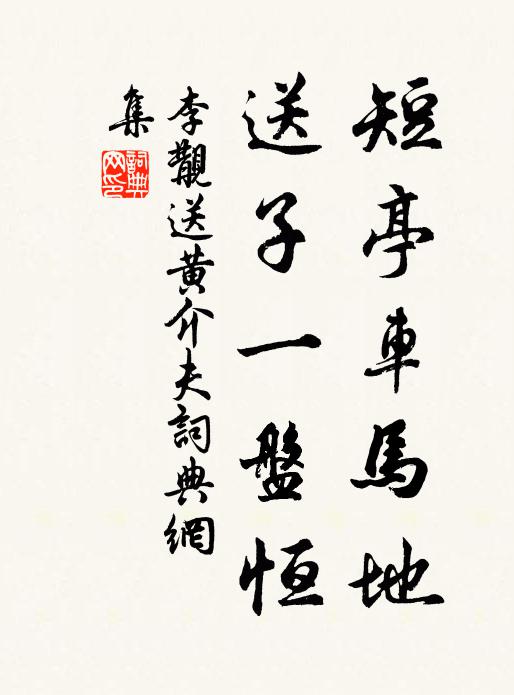 短亭車馬地
送子一盤恒
李覯送黃介夫詞典網
集
詞典
网印